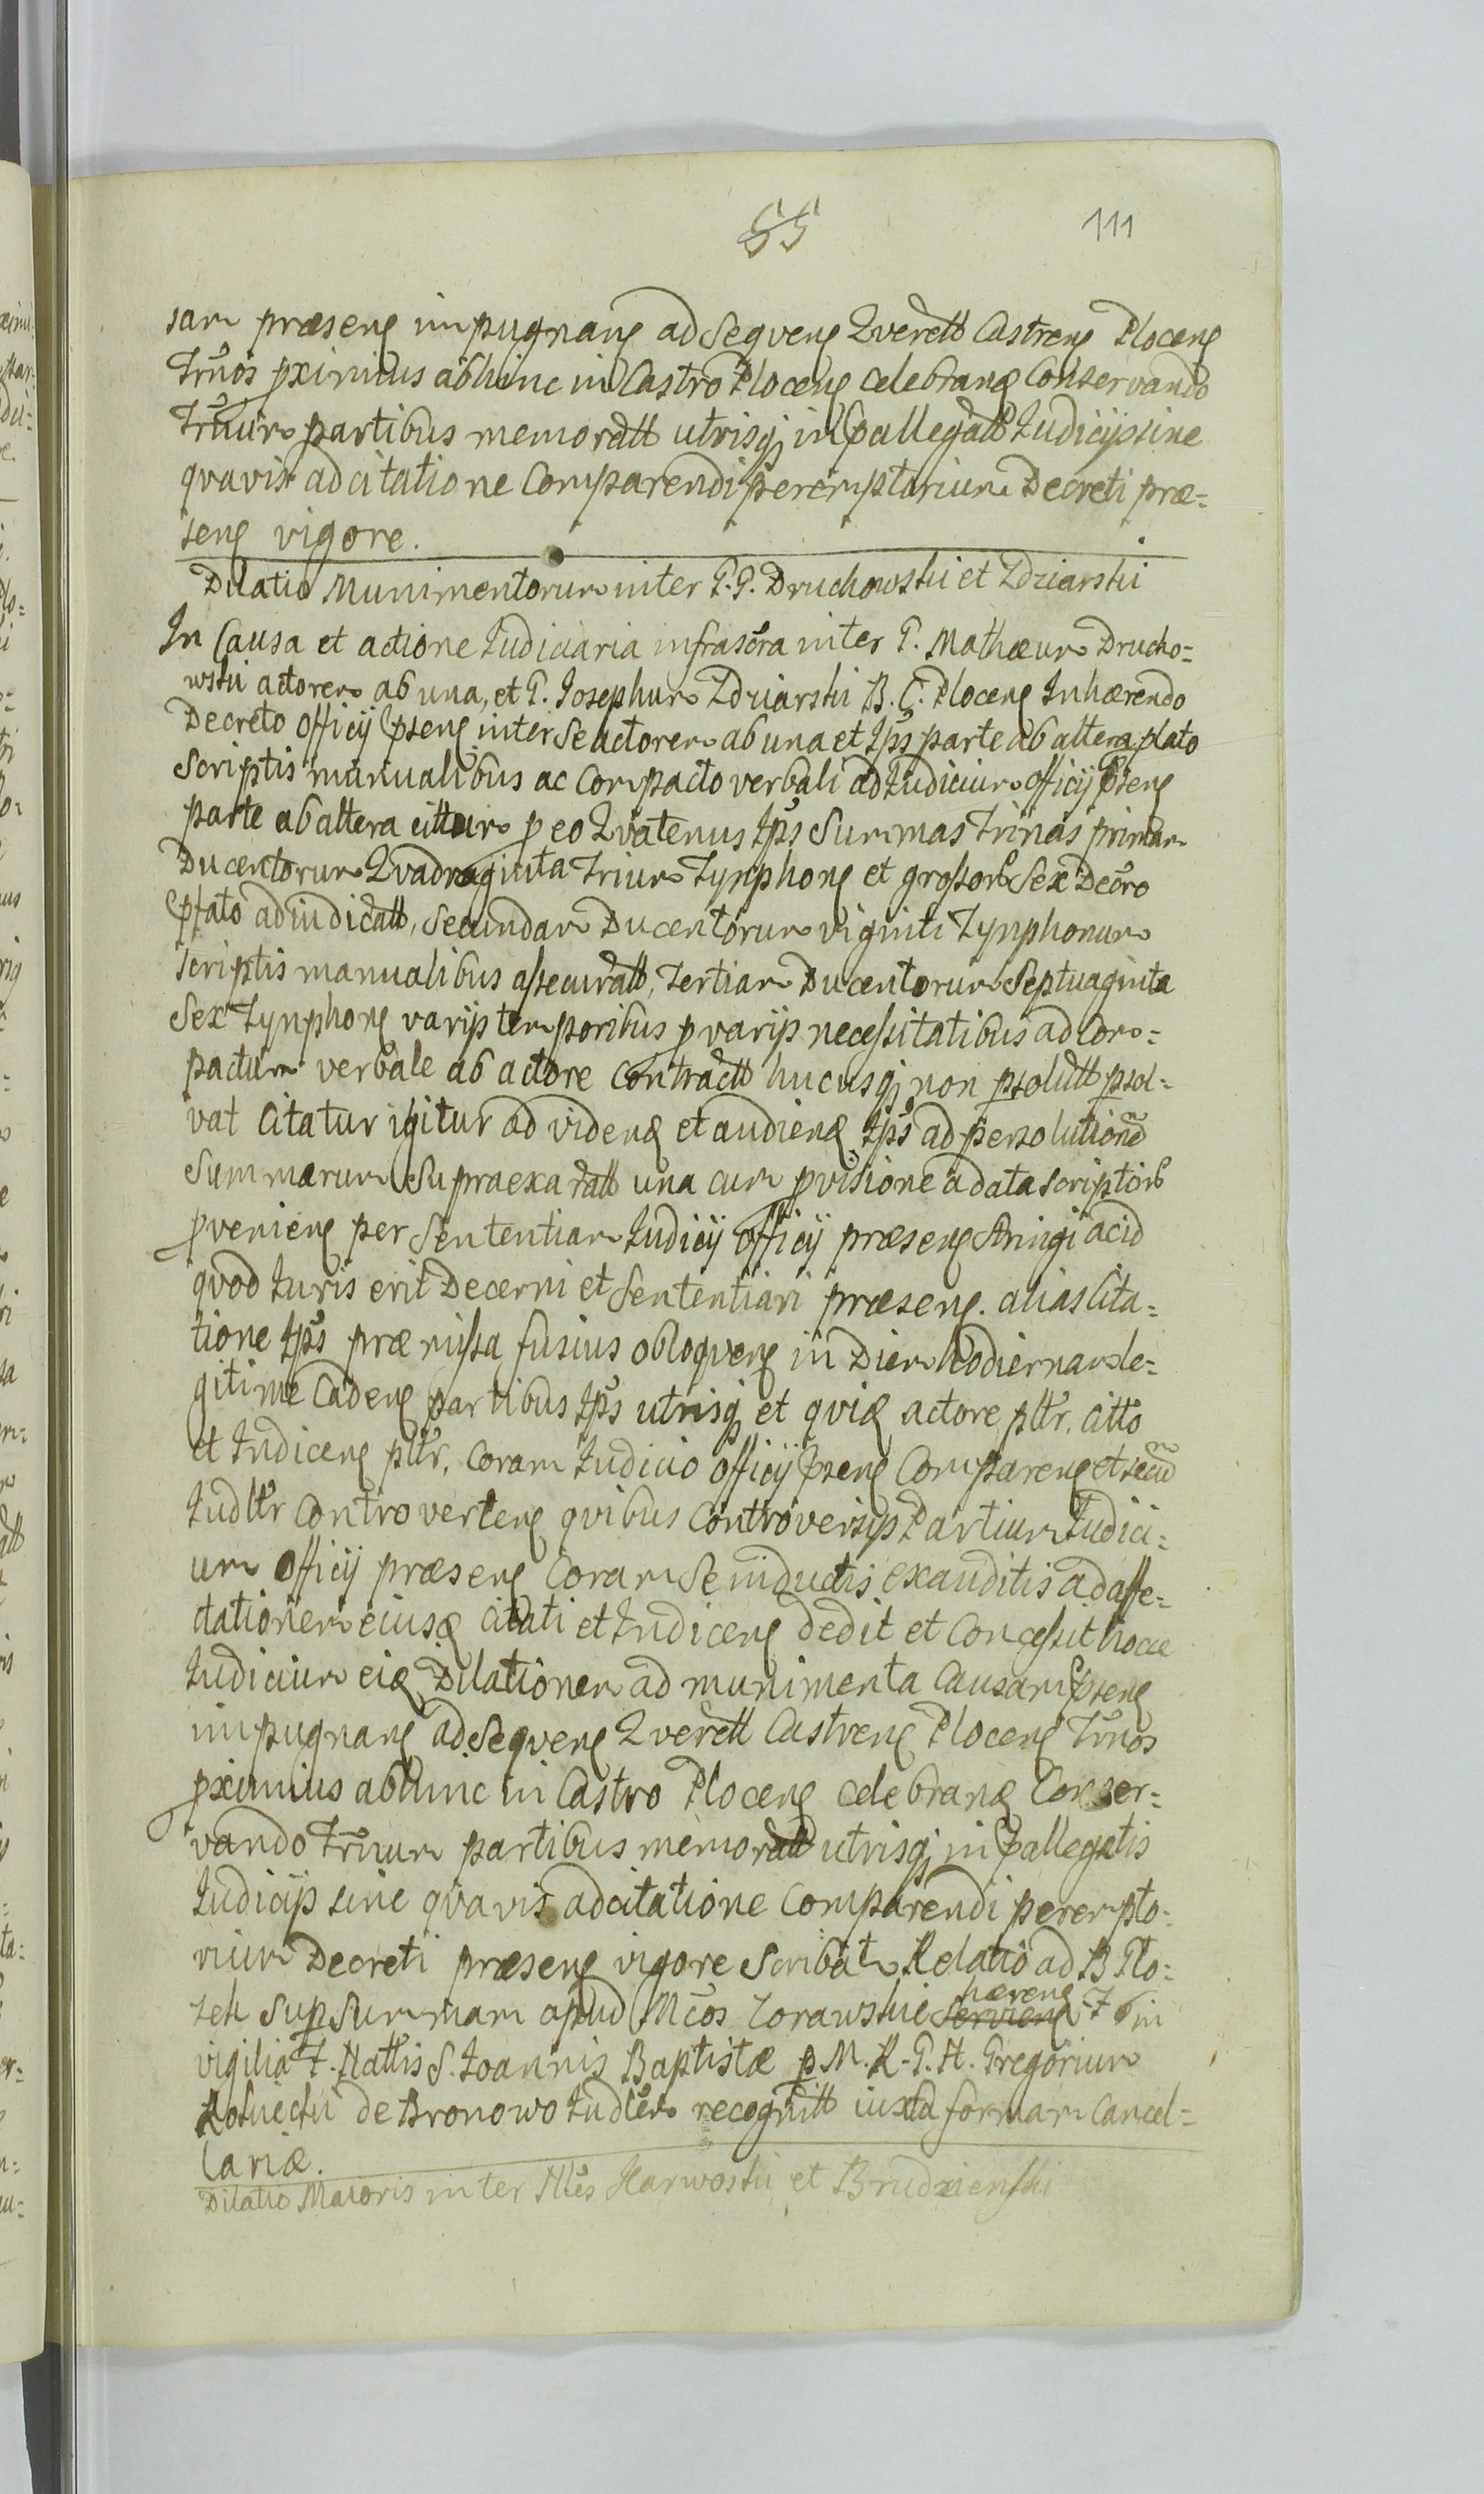 55
111
sam præsens impugnans ad sequens Querell Castrens Plocens
Trnos pximius abhinc in Castro Plocens celebrand Conservando
Trnum partibus memoratt utrisq in pallegatt Iudicijs sine
qvavis adcitatione Comparendi peremptorium Decreti præ=
sens vigore.
Dilatio Munimentorum inter G. G. Druchowski et Zdziarski
In Causa et actione Iudiciaria infrascra inter G. Mathæum Drucho=
wski actorem ab una, et G. Iosephum Zdziarski B. C. Plocens Inhærendo
Decreto Officij psens inter se actorem ab una et Ips parte ab altera plato
Scriptis manualibus ac Compacto verbali ad Iudicium Officij psens
parte ab altera cittum p eo Qvatenus Ips Summas Trinas primam
Ducentorum Qvadraginta Trium Tynphons et grossor Sex Decro
pfato adiudicatt, Secundam Ducentorum viginti Tynphonum
Scriptis manualibus assecuratt, Tertiam Ducentorum Septuaginta
Sex Tynphons varijs temporibus p varijs necessitatibus ad Com=
pactum verbale ab actore Contractt hucusq non psolutt psol=
vat Citatur igitur ad vidend et audiend Ips ad persolutione
Summarum Supraexaratt una cum pvisione a data scriptor
pveniens per Sententiam Iudicij Officij præsens Stringi ac id
quod Iuris erit Decerni et Sententiari præsens. alias Cita=
tione Ips præmissa fusius obloqvens in Diem hodiernam le=
gitime Cadens partibus Ips utrisq et qvid actore pltr. citto
et Indicens pltr. Coram Iudicio Officij psens Comparens et secu
Iudltr Controvertens qvibus Controversijs Partium Iudici=
um Officij præsens Coram Se inductis exauditis ad affe=
ctationem eiusd Citati et Indicens dedit et Concessit hocce
Iudicium eid Dilationem ad munimenta Causam psens
impugnans ad sequens Querell Castrens Plocens Trnos
pximius abhinc in Castro Plocens Celebrand Conser=
vando Trnum partibus memoratt utrisq in pallegatis
Iudicijs sine qvavis adcitatione Comparendi perempto=
rium Decreti præsens vigore Scribat. Relatio ad B Plo=
zeh Sup Summam apud Mcos Zorawskie Serviens hærens F 6 in
vigilia F. Nattis S. Ioannis Baptistæ p M. R. G. A. Gregorium
de Bronowo Iudlem recognitt iuxta formam Cancel=
lariæ.
Dilatio Maioris inter Nles Karwoski et Brudzienski